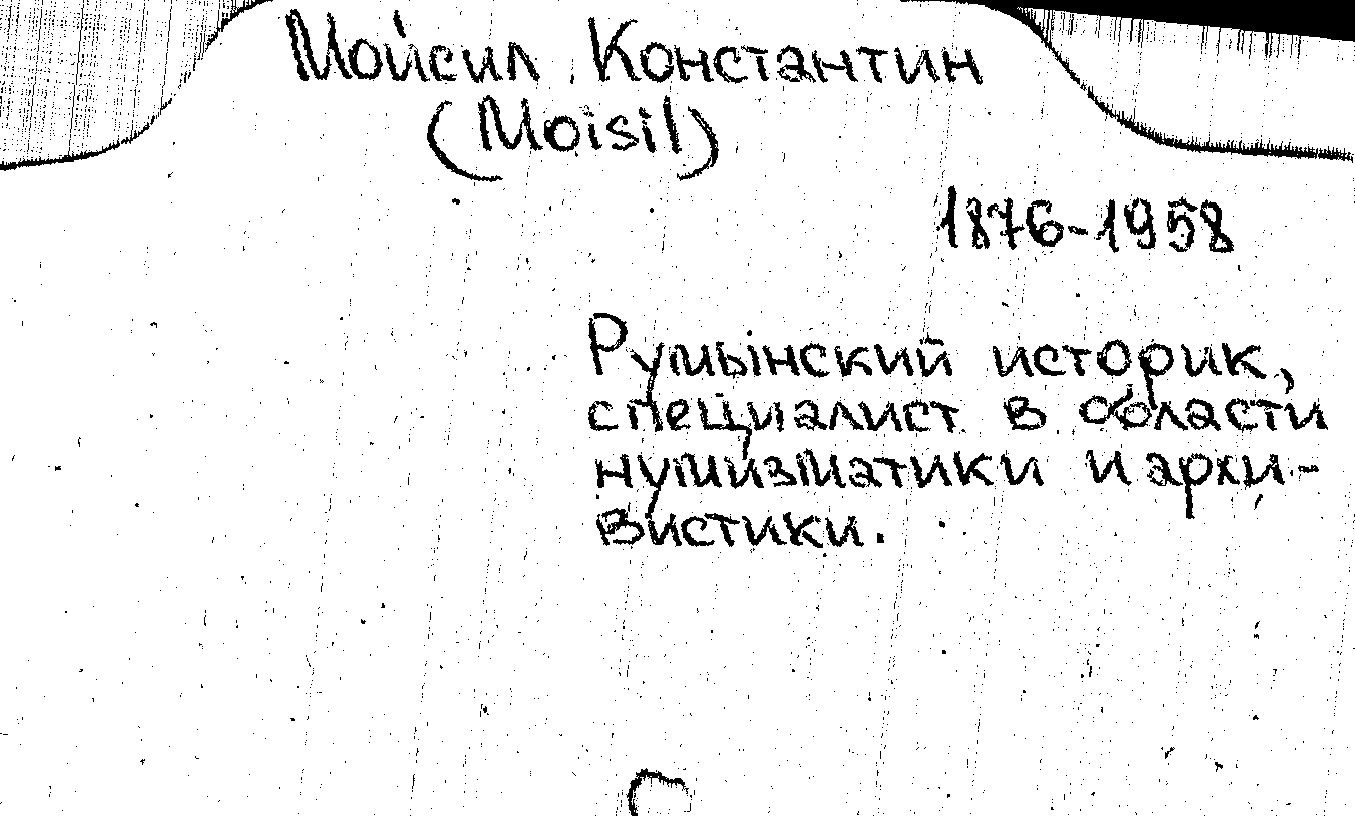 Мойсил Константин
(Moisil)
1876-1958
Румынский историк,
специалист в области
нумизматики и архи-
вистики.